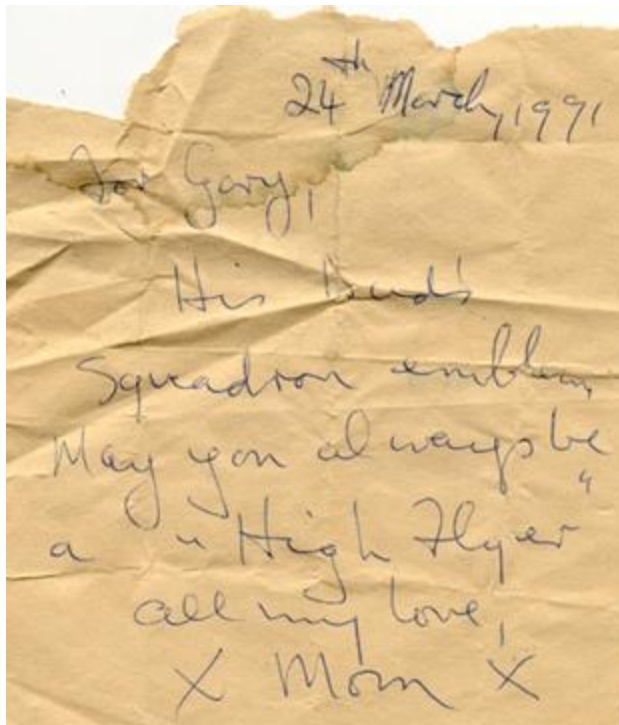 24th March, 1991
For Gary,
His Dad's
Squadron emblem,
May you always be
a "High Flyer"
all my love,
X Mom X